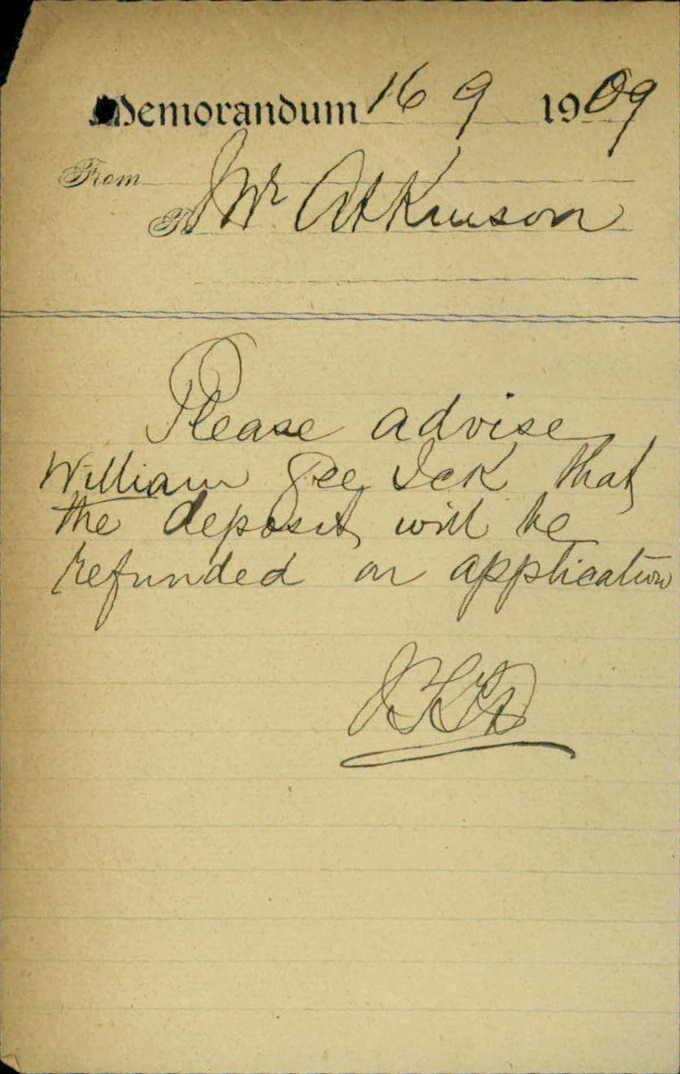 Memorandum 16 9 1909
From
To Mr Atkinson
Please advise
William Gee Ick that
the deposit will be
refunded on application